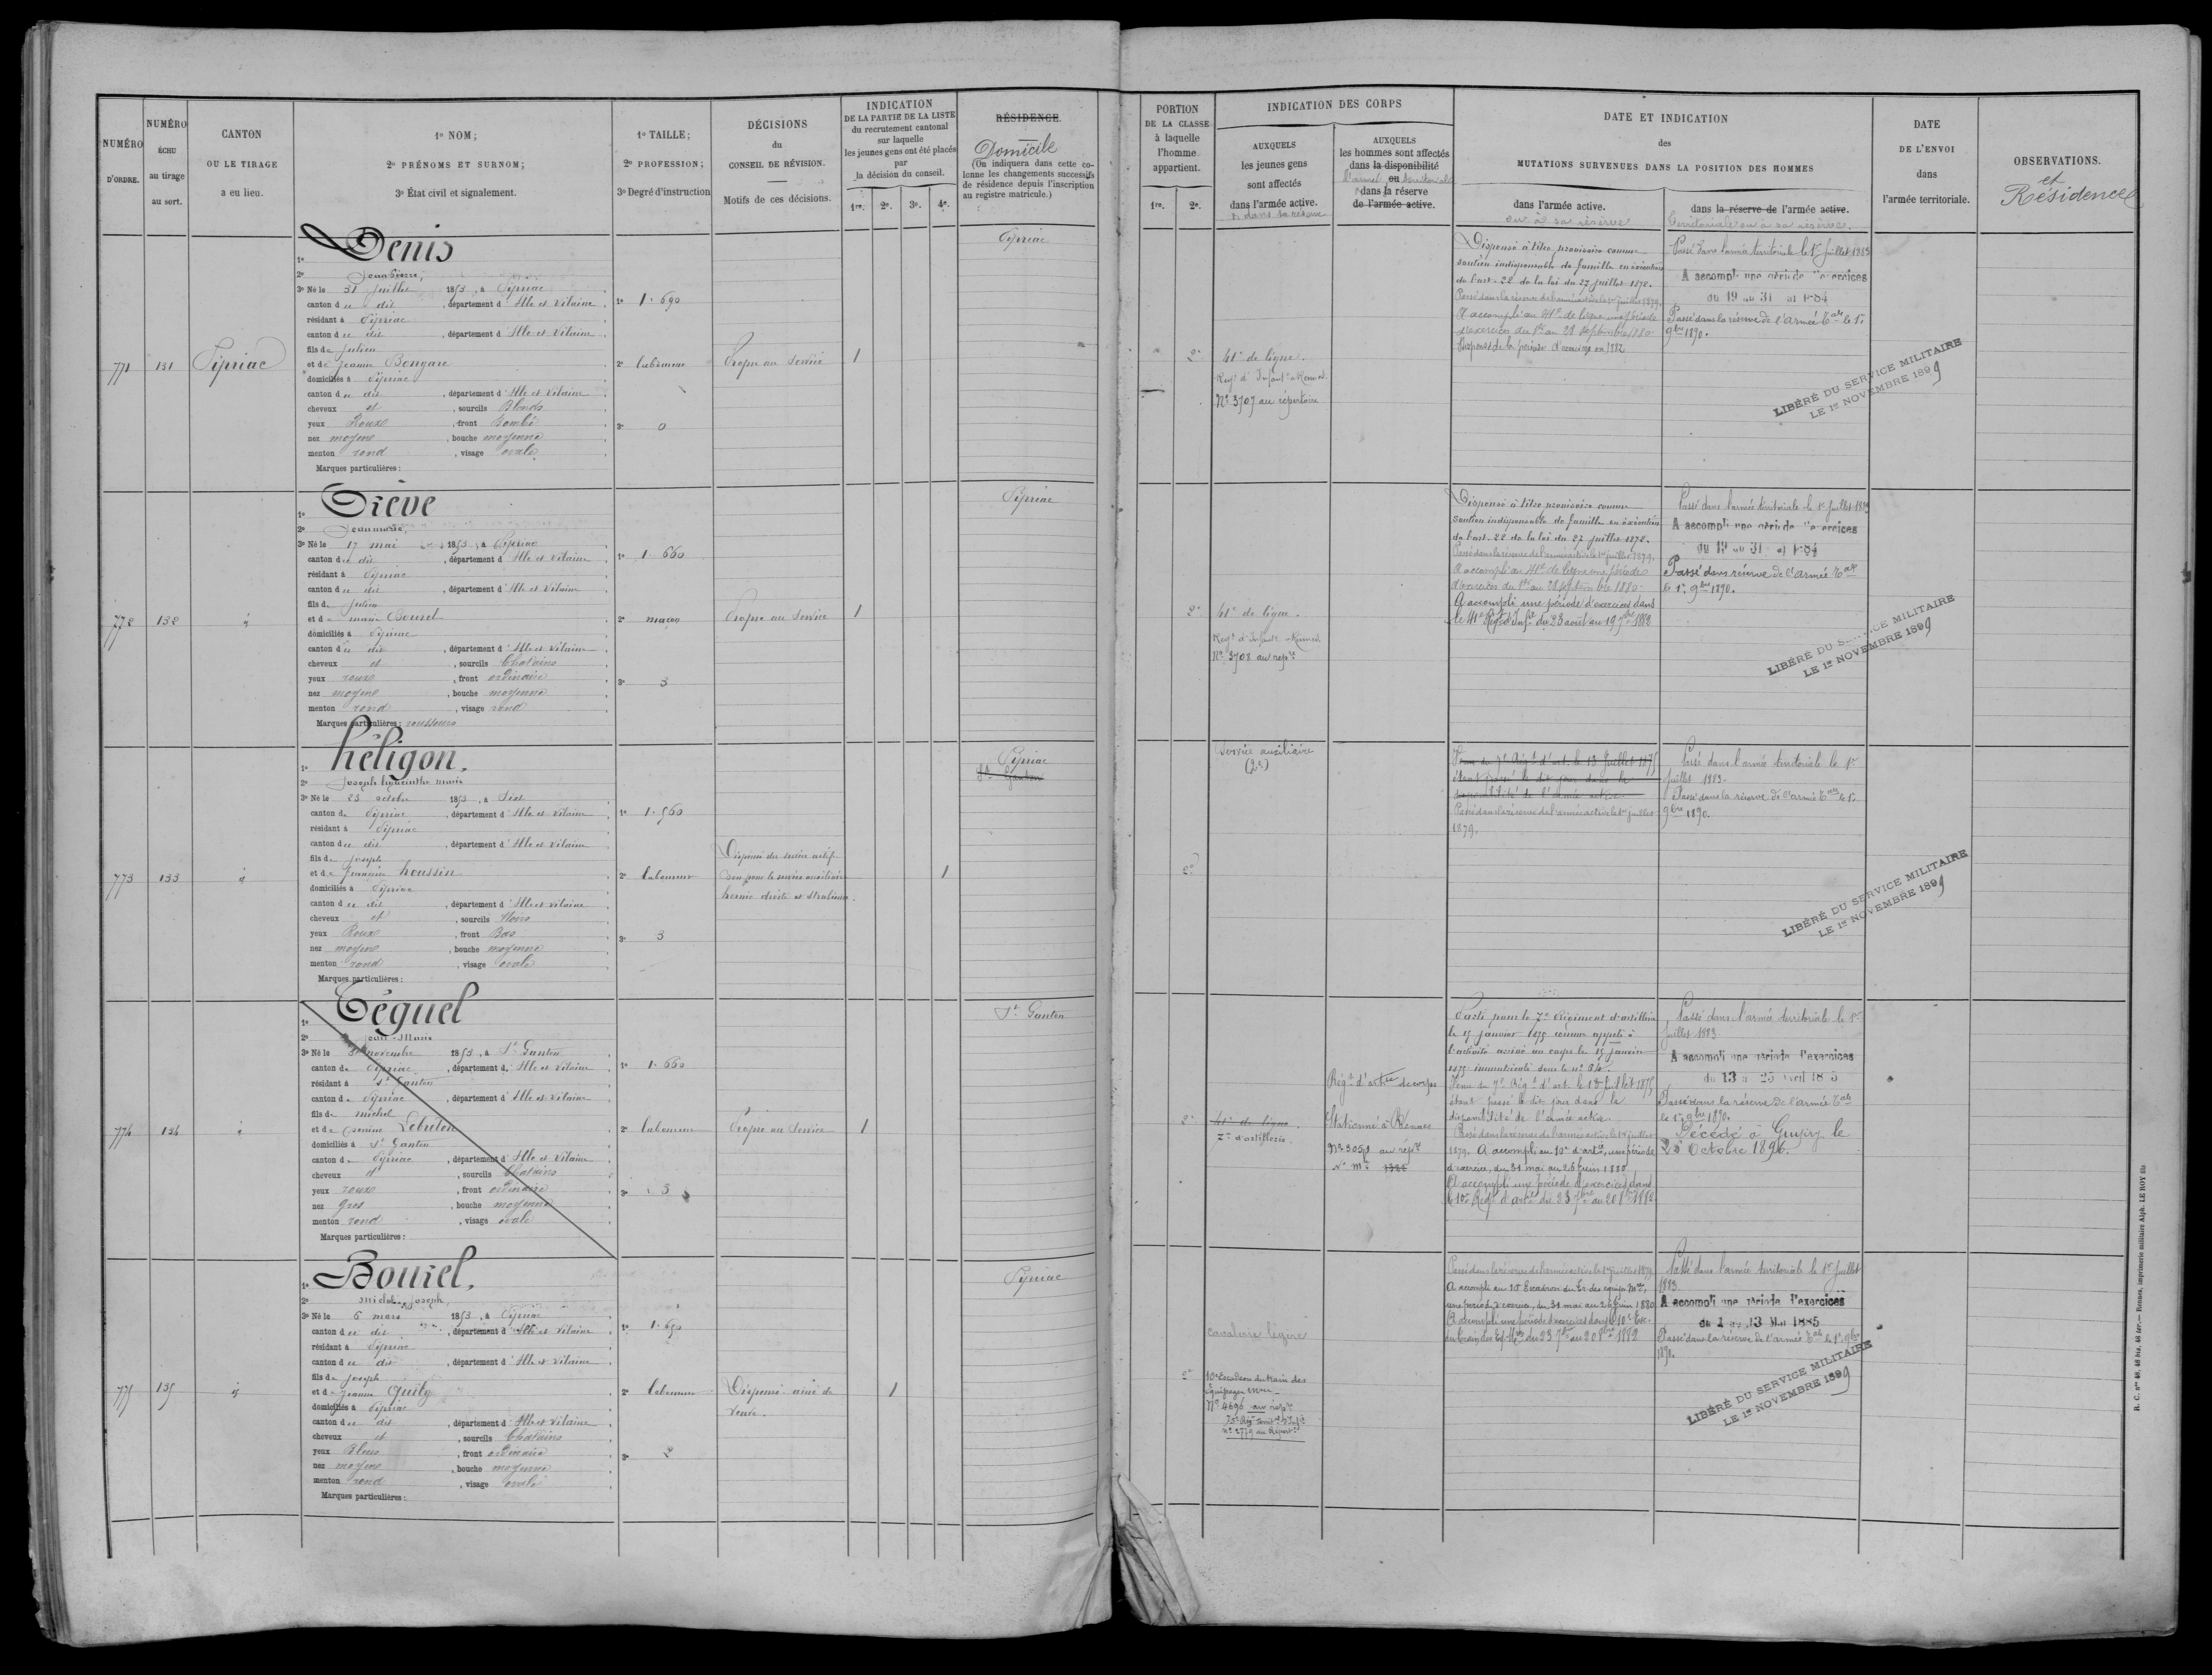 NUMÉRO D'ORDRE.
NUMÉRO ÉCHU au tirage au sort.
CANTON OU LE TIRAGE a eu lieu.
1º NOM;
2º PRÉNOMS ET SURNOM;
3º État civil et signalement.
1º TAILLE;
2º PROFESSION;
3º Degré d'instruction
DÉCISIONS
du
CONSEIL DE RÉVISION.
Motifs de ces décisions.
INDICATION
DE LA PARTIE DE LA LISTE
du recrutement cantonal
sur laquelle
les jeunes gens ont été placés
par
la décision du conseil.
1re. 2e. 3e. 4e.
RÉSIDENCE.
Domicile
(On indiquera dans cette co-
lonne les changements successifs
de résidence depuis l'inscription
au registre matricule.)
PORTION
DE LA CLASSE
à laquelle
l'homme
appartient.
1re. 2e.
INDICATION DES CORPS
AUXQUELS
les jeunes gens
sont affectés
dans l'armée active.
et dans sa réserve
AUXQUELS
les hommes sont affectés
dans la disponibilité
ou
dans la réserve
de l'armée active.
l'armée territoriale
DATE ET INDICATION
des
MUTATIONS SURVENUES DANS LA POSITION DES HOMMES
dans l'armée active.
ou à sa réserve
dans la réserve de l'armée active.
Territoriale ou à sa réserve.
DATE
DE L'ENVOI
dans
l'armée territoriale.
OBSERVATIONS.
et
Résidence
771
131
Pipriac
1º Denis
2º Jean Pierre
3º Né le 31 juillet 1853, à Pipriac
canton d u dit, département d'Ille et Vilaine
résidant à Pipriac
canton d u dit, département d'Ille et Vilaine
fils de Julien
et de Jeanne
domiciliés à Pipriac
canton d u dit, département d'Ille et Vilaine
cheveux et, sourcils Blonds
yeux Roux, front Bombé
nez moyen, bouche moyenne
menton rond, visage ovale
Marques particulières:
1º 1.690
2º laboureur
3º 0
Propre au Service
1
Pipriac
2e
41e de ligne.
Regt d'Infant. à Rennes
Nº 3707 au répertoire
Dispensé à titre provisoire comme
soutien indispensable de famille en exécution
de l'art. 22 de la loi du 27 juillet 1872.
Passé dans la réserve de l'armée active le 1er juillet 1879.
A accompli au 41e de ligne une période
d'exercices du 1er au 28 septembre 1880.
Dispensé de la période d'exercices en 1882
Passé dans l'armée territoriale le 1er Juillet 1883
A accompli une période d'exercices
du 19 au 31 1884
Passé dans la réserve de l'Armée Tale le 1er
9bre 1890.
LIBÉRÉ DU SERVICE MILITAIRE
LE 1er NOVEMBRE 1899
772
132
id
1º Griève
2º Jean marie
3º Né le 17 mai 1853, à Pipriac
canton d u dit, département d'Ille et Vilaine
résidant à Pipriac
canton d u dit, département d'Ille et Vilaine
fils de Julien
et de marie Bourel
domiciliés à Pipriac
canton d u dit, département d'Ille et Vilaine
cheveux et, sourcils Chatains
yeux roux, front ordinaire
nez moyen, bouche moyenne
menton rond, visage rond
Marques particulières: rousseurs
1º 1.660
2º maçon
3º 3
Propre au Service
1
Pipriac
2e
41e de ligne.
Regt d'Infant. Rennes
Nº 3708 au repre
Dispensé à titre provisoire comme
soutien indispensable de famille en exécution
de l'art. 22 de la loi du 27 juillet 1872.
Passé dans la réserve de l'armée active le 1er juillet 1879.
A accompli au 41e de ligne une période
d'exercices du 1er au 28 septembre 1880.
A accompli une période d'exercices dans
le 41e Régt d'Infie du 23 août au 19 7bre 1882
Passé dans l'armée territoriale le 1er Juillet 1883
A accompli une période d'exercices
du 19 au 31 1884
Passé dans réserve de l'Armée Tale
le 1er 9bre 1890.
LIBÉRÉ DU SERVICE MILITAIRE
LE 1er NOVEMBRE 1899
773
133
id
1º héligon.
2º Joseph hyacinthe marie
3º Né le 23 octobre 1853, à Sixt
canton de Pipriac, département d'Ille et Vilaine
résidant à Pipriac
canton d u dit, département d'Ille et Vilaine
fils de Joseph
et de françoise houssin
domiciliés à Pipriac
canton d u dit, département d'Ille et Vilaine
cheveux et, sourcils Noirs
yeux Roux, front Bas
nez moyen, bouche moyenne
menton rond, visage ovale
Marques particulières:
1º 1.560
2º laboureur
3º 3
Dispensé du service actif
bon pour le service auxiliaire
hernie droite
1
Pipriac
St Ganton
2e
Service auxiliaire
(2e)
Venu du 7e Régt d'art. le 13 Juillet 1875
étant passé le dit jour dans la
disponibilité de l'armée active
Passé dans la réserve de l'armée active le 1er juillet
1879.
Passé dans l'armée territoriale le 1er
Juillet 1883.
Passé dans la réserve de l'armée Tale le 1er
9bre 1890.
LIBÉRÉ DU SERVICE MILITAIRE
LE 1er NOVEMBRE 1899
774
134
id
1º Céguel
2º jean-Marie
3º Né le novembre 1853, à St Ganton
canton de Pipriac, département d. Ille et Vilaine
résidant à St Ganton
canton de Pipriac, département d'Ille et Vilaine
fils de michel
et de Lebreton
domiciliés à St Ganton
canton de Pipriac, département d'Ille et Vilaine
cheveux et, sourcils Chatains
yeux roux, front ordinaire
nez gros, bouche moyenne
menton rond, visage ovale
Marques particulières:
1º 1.660
2º laboureur
3º 3
Propre au Service
1
St Ganton
2e
41e de ligne
7e d'artillerie.
Régt d'artie de corps
Stationné à Rennes
Parti pour le 7e Régiment d'artillerie
le 15 janvier 1875 comme appelé à
l'activité arrivé au corps le 15 janvier
1875 immatriculé sous le nº
Venu du 7e Régt d'art. le 13 Juillet 1875
étant passé le dit jour dans la
disponibilité de l'armée active
Passé dans la réserve de l'armée active le 1er juillet
1879. A accompli au 10e d'artie, une période
d'exercice, du 31 mai au 26 juin 1880
A accompli une période d'exercices dans
le 10e Régt d'artie du 23 7bre au 20 8bre 1882
Passé dans l'armée territoriale le 1er
Juillet 1883
A accompli une période d'exercices
du 13 a 25 Avril 18 5
Passé dans la réserve de l'armée Tale
le 1er 9bre 1890.
Décédé à Guipry le
25 Octobre 1896.
775
135
id
1º Bourel.
2º michel joseph
3º Né le 6 mars 1853, à Pipriac
canton d u dit, département d'Ille et Vilaine
résidant à Pipriac
canton d u dit, département d'Ille et Vilaine
fils de Joseph
et de Jeanne Guily
domiciliés à Pipriac
canton d u dit, département d'Ille et Vilaine
cheveux et, sourcils Chatains
yeux Bleus, front ordinaire
nez moyen, bouche moyenne
menton rond, visage ovale
Marques particulières:
1º 1.690
2º laboureur
3º 2
Dispensé ainé de
veuve.
1
Pipriac
2e
cavalerie légère
10e Escadron du train des
Equipages mres
Nº 4696 au repre
Passé dans la réserve de l'armée active le 1er juillet 1879
A accompli au 10e Escadron du Tr. des équips Mres,
une période d'exercice, du 31 mai au 26 juin 1880
A accompli une période d'exercices dans le 10e Esc.
du train des Eq. Mres du 23 7bre au 20 8bre 1882
Passé dans l'armée territoriale le 1er Juillet
1883
A accompli une période d'exercices
du 1 au 13 Mai 1885
Passé dans la réserve de l'armée Tale le 1er 9bre
1890.
LIBÉRÉ DU SERVICE MILITAIRE
LE 1er NOVEMBRE 1899
R. C. nos 46, 46 bis, 46 ter. — Rennes, imprimerie militaire Alph. LE ROY fils